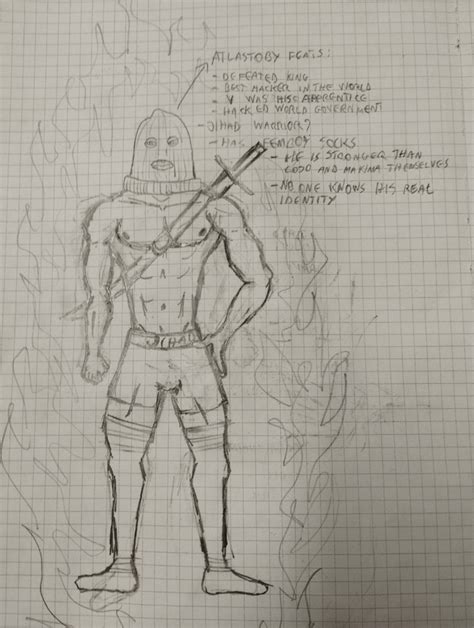 ATLASTOBY FEATS:
- DEFEATED KING
- BEST HACKER IN THE WORLD
- V WAS HIS APPRENTICE
- HACKED WORLD GOVERNMENT
- JIHAD WARRIOR?
- HAS FEMBOY SOCKS
- HE IS STRONGER THAN
GOJO AND MAKIMA THEMSELVES
- NO ONE KNOWS HIS REAL
IDENTITY